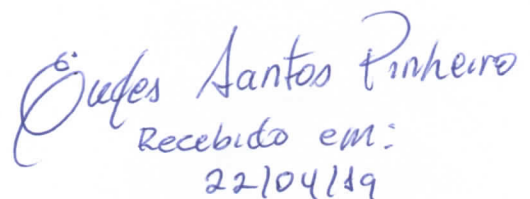 Eudes Santos Pinheiro
Recebido em:
22/04/19